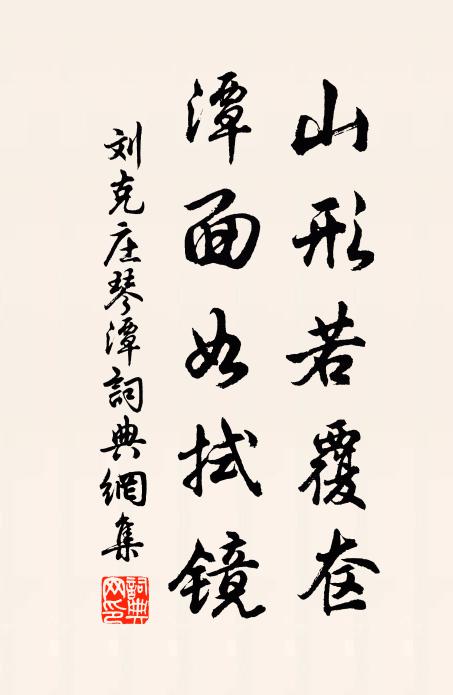 山形若覆奁
潭面如拭镜
刘克庄琴潭詞典網集
詞典網印